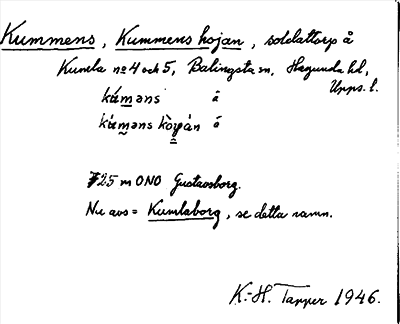 Kummens, Kummens kojan, soldattorp å
Kumla no 4 och 5, Balingsta sn, Hagunda hd,
Upps. l.
kúmǝns å
kúmǝns kòjan å
725 m ONO Gustavsborg.
Nu avs = Kumlaborg, se detta namn.
K.-H. Tapper 1946.